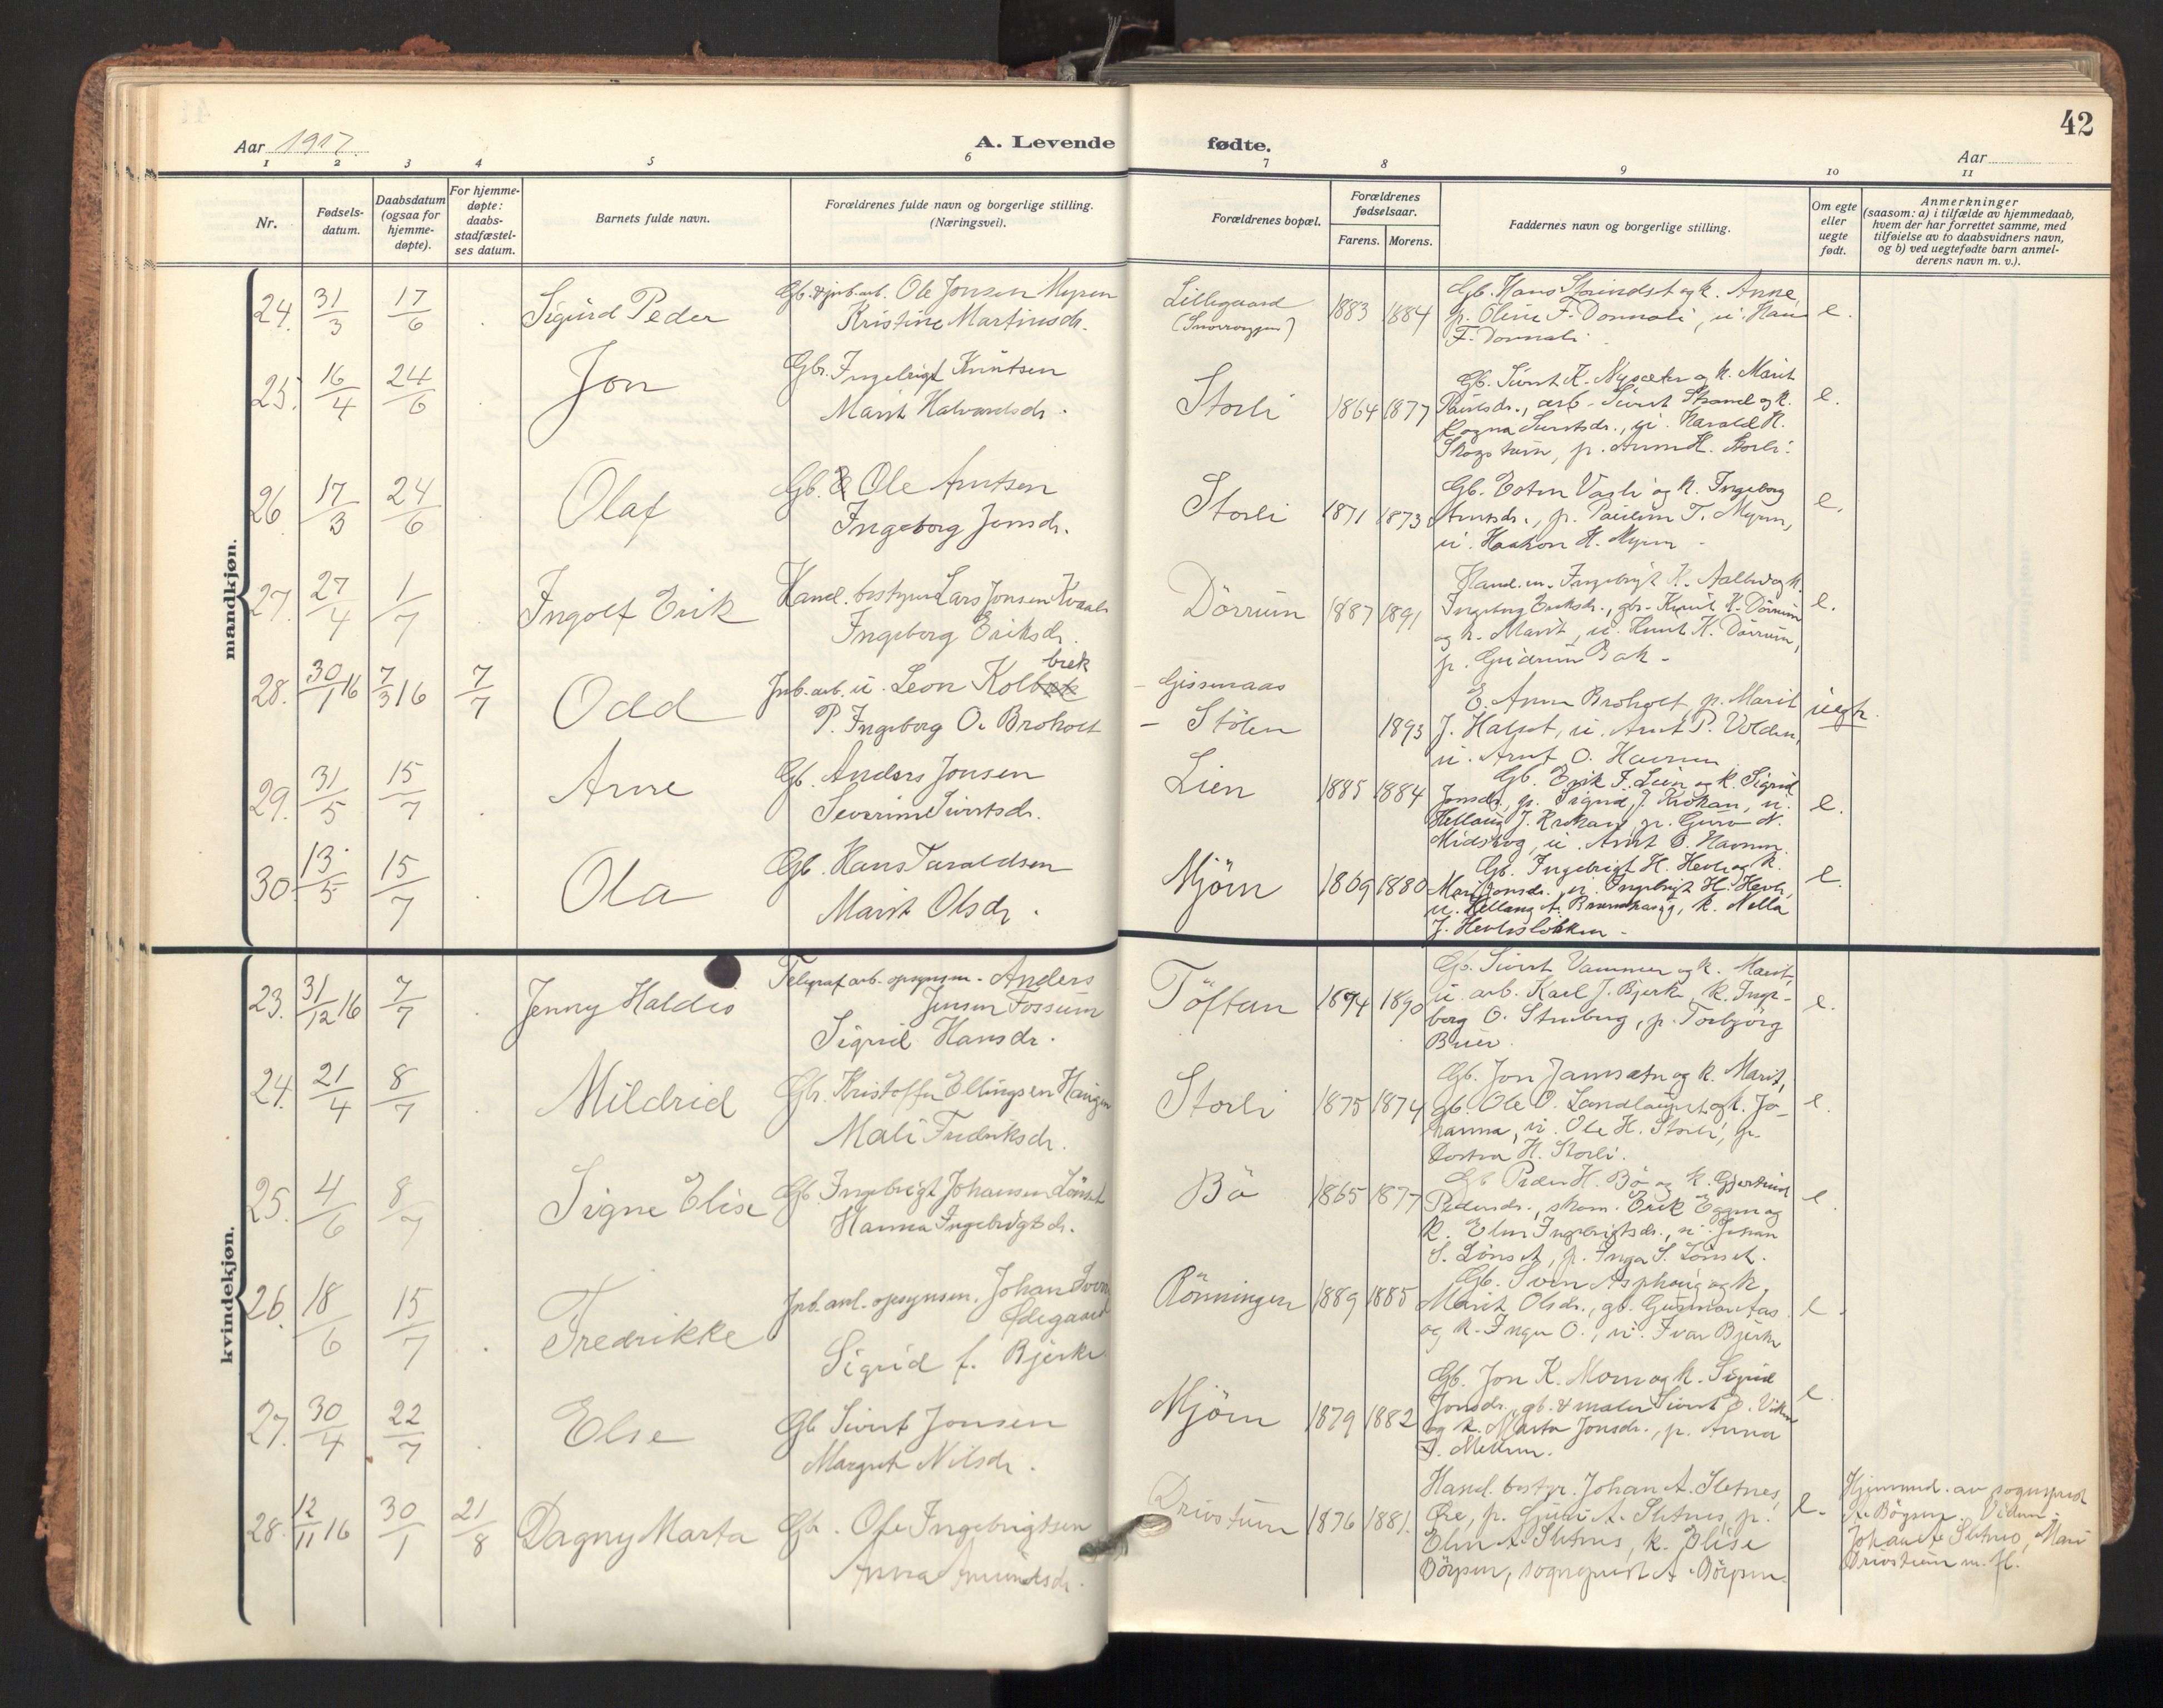 42
Aar 1917.
A. Levende fødte.
Aar
1 2 3 4 5 6 7 8 9 10 11
Nr.
Fødsels-
datum.
Daabsdatum
(ogsaa for
hjemme-
døpte).
For hjemme-
døpte:
daabs-
stadfæstel-
ses datum.
Barnets fulde navn.
Forældrenes fulde navn og borgerlige stilling.
(Næringsvei).
Forældrenes bopæl.
Forældrenes
fødselsaar.
Farens. Morens.
Faddernes navn og borgerlige stilling.
Om egte
eller
uegte
født.
Anmerkninger
(saasom: a) i tilfælde av hjemmedaab,
hvem der har forrettet samme, med
tilføielse av to daabsvidners navn,
og b) ved uegtefødte barn anmel-
derens navn m. v.).
mandkjøn.
24. 31/3 17/6 Sigurd Peder
Gb. & jnb. arb. Ole Jonsen Myren
Kristine Martinsdr.
Lillegaard
1883 1884
Gb. Hans Strindset og k. Anne,
p. Oline F. Donnali, u. Hans
F. Donnali
e.
25. 16/4 24/6 Jon
Gbr. Ingebrigt Knutsen
Marit Halvardsdr.
Storli 1864 1877
Gb. Sivert K. Nysæter og k. Marit
Paulsdr., arb. Sivert Strand og k.
Logna Sivertsdr., u. Harald K.
Skogstuen, p. Anne H. Storli.
e.
26 17/3 24/6 Olaf
Gb. Ole Arntsen
Ingeborg Jonsdr.
Storli 1871 1873
Gb. Esten Vasli og k. Ingeborg
Arntsdr., p. Pauline T. Myren,
u. Haakon H. Myren
e.
27. 27/4 1/7 Ingolf Erik
Hand. bestyrer Lars Jonsen Kvaale
Ingeborg Eriksdr.
Dörrum 1887 1891
Hand. m. Ingebrigt K. Aalbu og k.
Ingeborg Eriksdr., gbr. Knut K. Dörrum
og k. Marit, u. Knut K. Dörrum,
p. Gudrun Bak
e.
28. 30/1 16 7/3 16 7/7 Odd
brek
Jnb. arb. u. Leon Kolbæk
P. Ingeborg O. Broholt
- Gissenaas
- Stölen
1893
E. Anne Broholt, p. Marit
J. Halset, u. Arnt P. Volden,
u. Arnt O. Havnen
uegt.
29. 31/5 15/7 Arne
Gb. Anders Jonsen
Severine Sivertsdr.
Lien 1885 1884
Gb. Erik F. Lien og k. Sigrid
Jonsdr., p. Sigrid J. Krokan, u.
Hellaug J. Krokan, p. Guro N.
Midskog, u. Arnt O. Havnen.
e.
30. 13/5 15/7 Ola
Gb. Hans Taraldsen
Marit Olsdr.
Mjöen 1869 1880
Gb. Ingebrigt H. Hevle og k.
Mari Jonsdr., u. Ingebrigt H. Hevle,
u. Hellaug A. k. Nella
J. Hevlesløkken
e.
kvindekjøn.
23. 31/12 16 7/7 Jenny Haldis
Telegraf arb. opsynsm. Anders
Jensen Fossum
Sigrid Hansdr.
Töftan 1874 1890
Gb. Sivert Vammer og k. Marit,
u. arb. Karl J. Bjerke, k. Inge-
borg O. Stuberg, p. Torbjörg
e.
24. 21/4 8/7 Mildrid
Gbr. Kristoffer Ellingsen Haugen
Mali Fredriksdr.
Storli 1875 1874
Gb. Jon Jamsætr og k. Marit,
gb. Ole O. Landlaupet og k. Jo-
hanna, u. Ole H. Storli, p.
Dortea H. Storli.
e.
25. 4/6 8/7 Signe Elise
Gb. Ingebrigt Johansen Lönset
Hanna Ingebrigtsdr.
Bö 1865 1877
Gb. Peder H. Bö og k. Gjertrud
Pedersdr., skom. Erik Eggen og
k. Elen Ingebrigtsdr., u. Johan
S. Lönset, p. Inga S. Lönset.
e.
26. 18/6 15/7 Fredrikke
Jnb. anl. opsynsm. Johan
Ødegaard
Sigrid f. Bjerke
Rönningen 1889 1885
Gb. Sven Asphaug og k.
Marit Olsdr., gb. Gissenaas
og k. Inger O., u. Ivar Bjerke
e.
27. 30/4 22/7 Else
Gb. Sivert Jonsen
Margret Nilsdr.
Mjöen 1879 1882
Gb. Jon K. Moen og k. Sigrid
Jonsdr., gb. & maler Sivert O. Viken
og k. Marta Jonsdr., p. Anna
J. Mellem.
e.
28. 12/11 16 30/1 21/8 Dagny Marta
Gbr. Ole Ingebrigtsen
Anna Amundsdr.
Drivstuen 1876 1881.
Hand. bestyr. Johan A. Sletnes,
Øre, p. Guri A. Sletnes, p.
Elen A. Sletnes, k. Elise
Börgsen, sogneprest A. Börgsen.
e.
Hjemmed. av sogneprest
A. Börgsen. Vidner:
Johan A. Sletnes, Mari
Drivstuen m. fl.